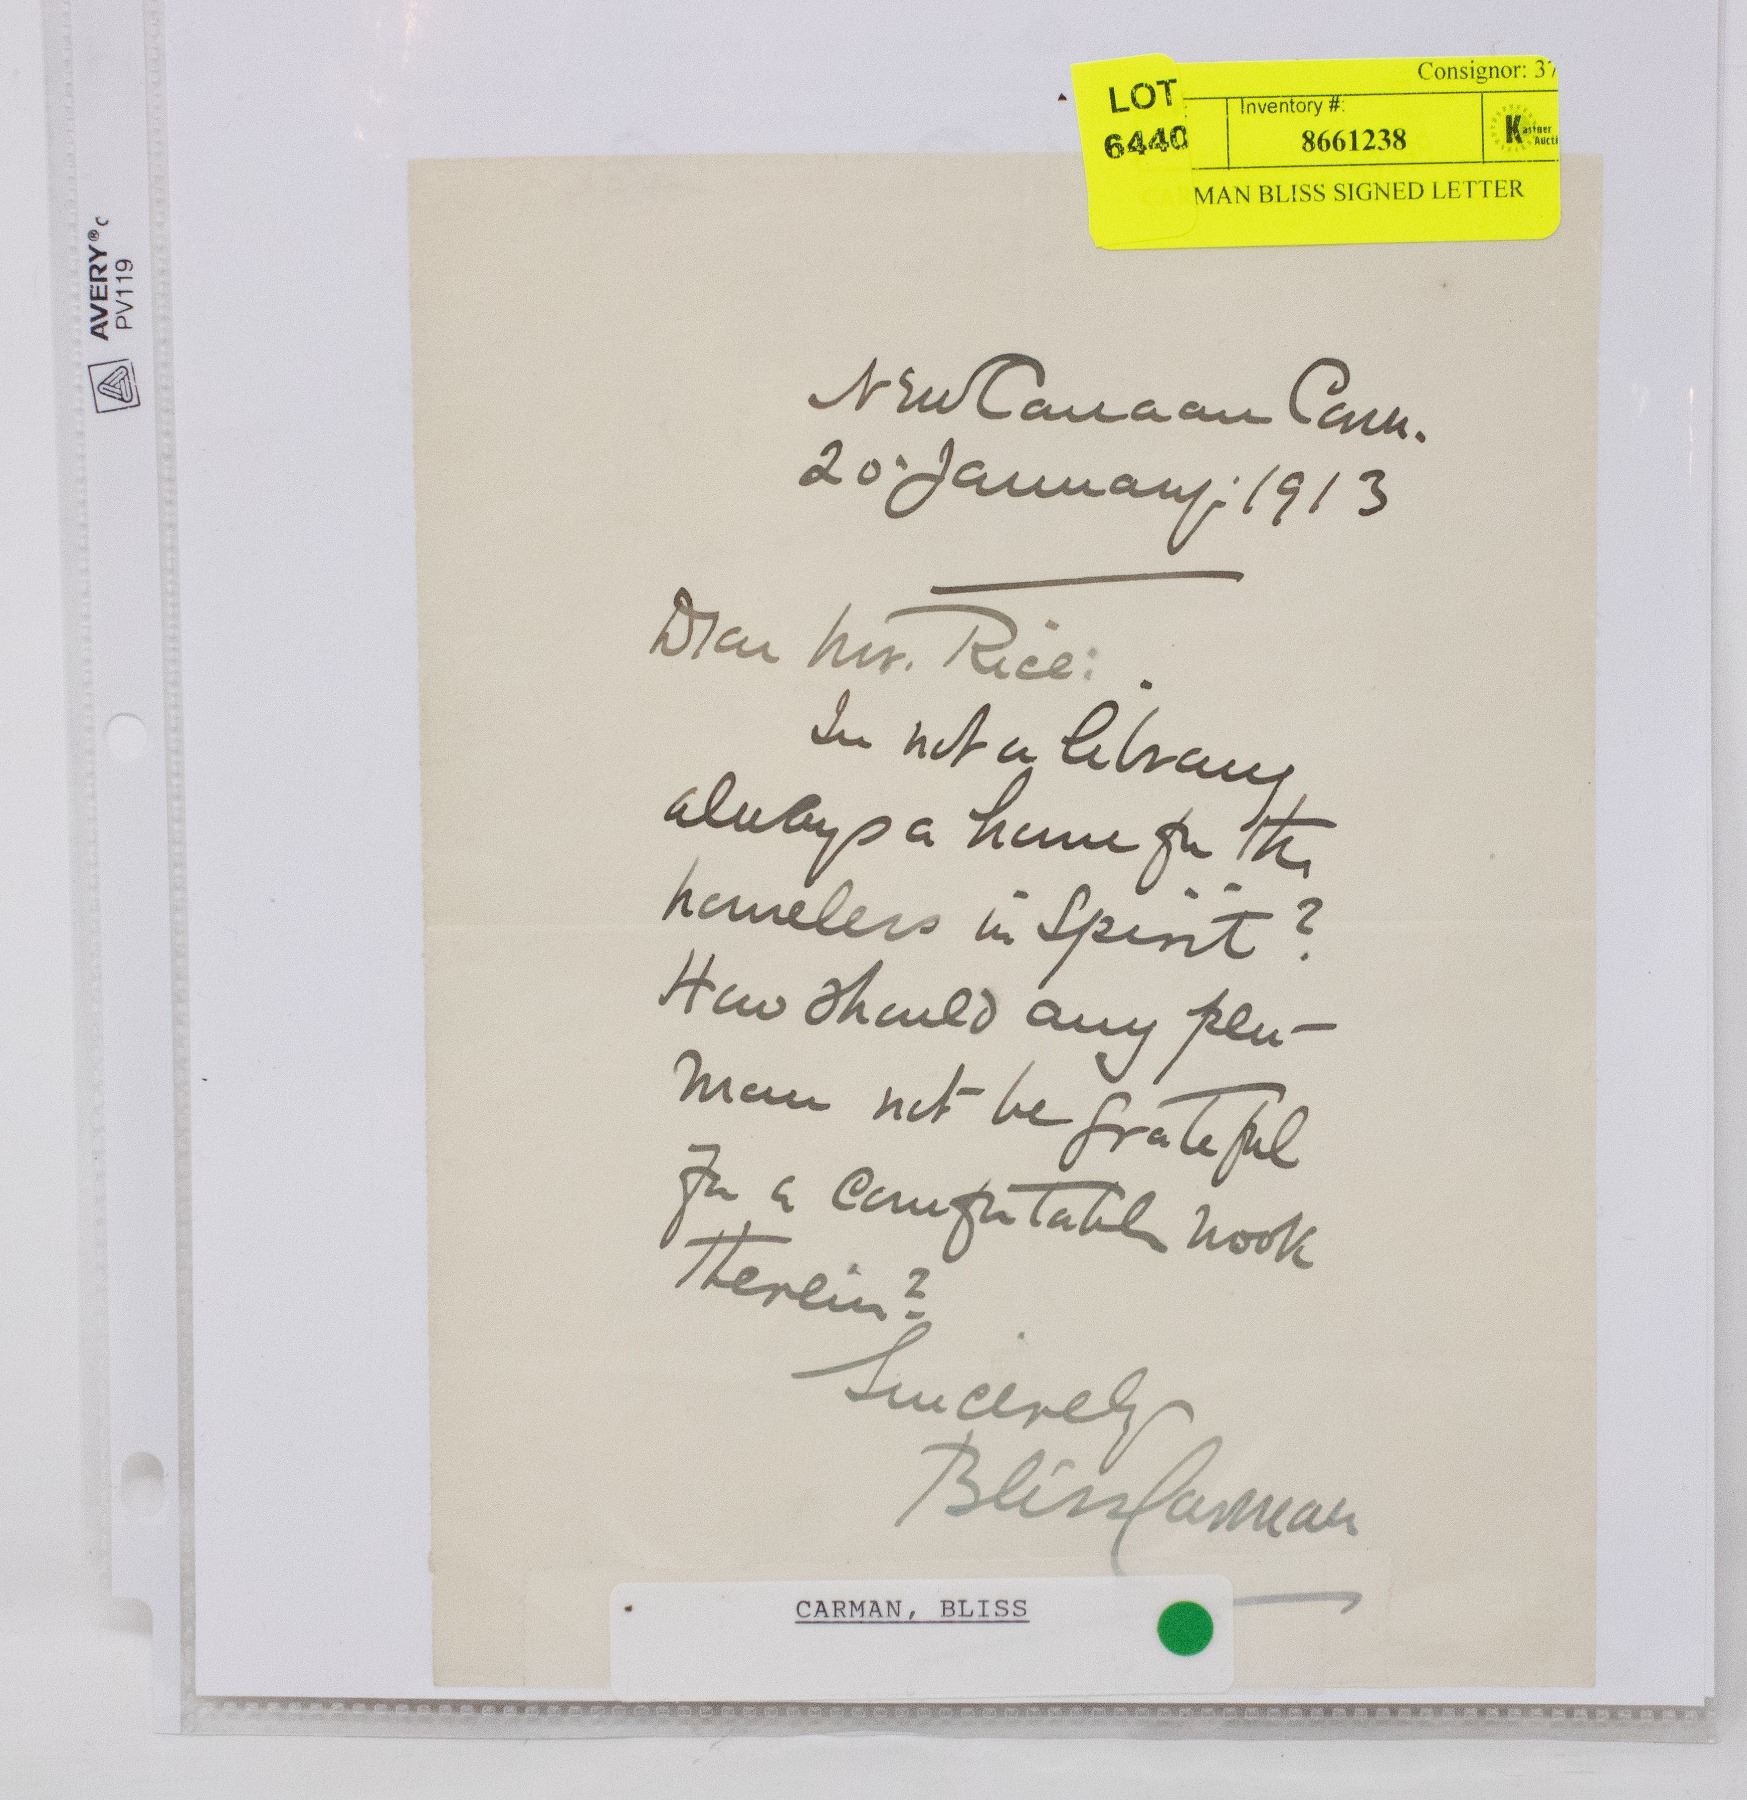 Consignor: 37
LOT
6440
Inventory #:
8661238
Kastner
Aucti
MAN BLISS SIGNED LETTER
AVERY®
PV119
New Canaan Conn.
20 · January : 1913
Dear Mr. Rice:
Is not a library
always a home for the
homeless in spirit?
How should any pen-
man not be grateful
for a comfortable nook
therein?
Sincerely
Bliss Carman
CARMAN, BLISS